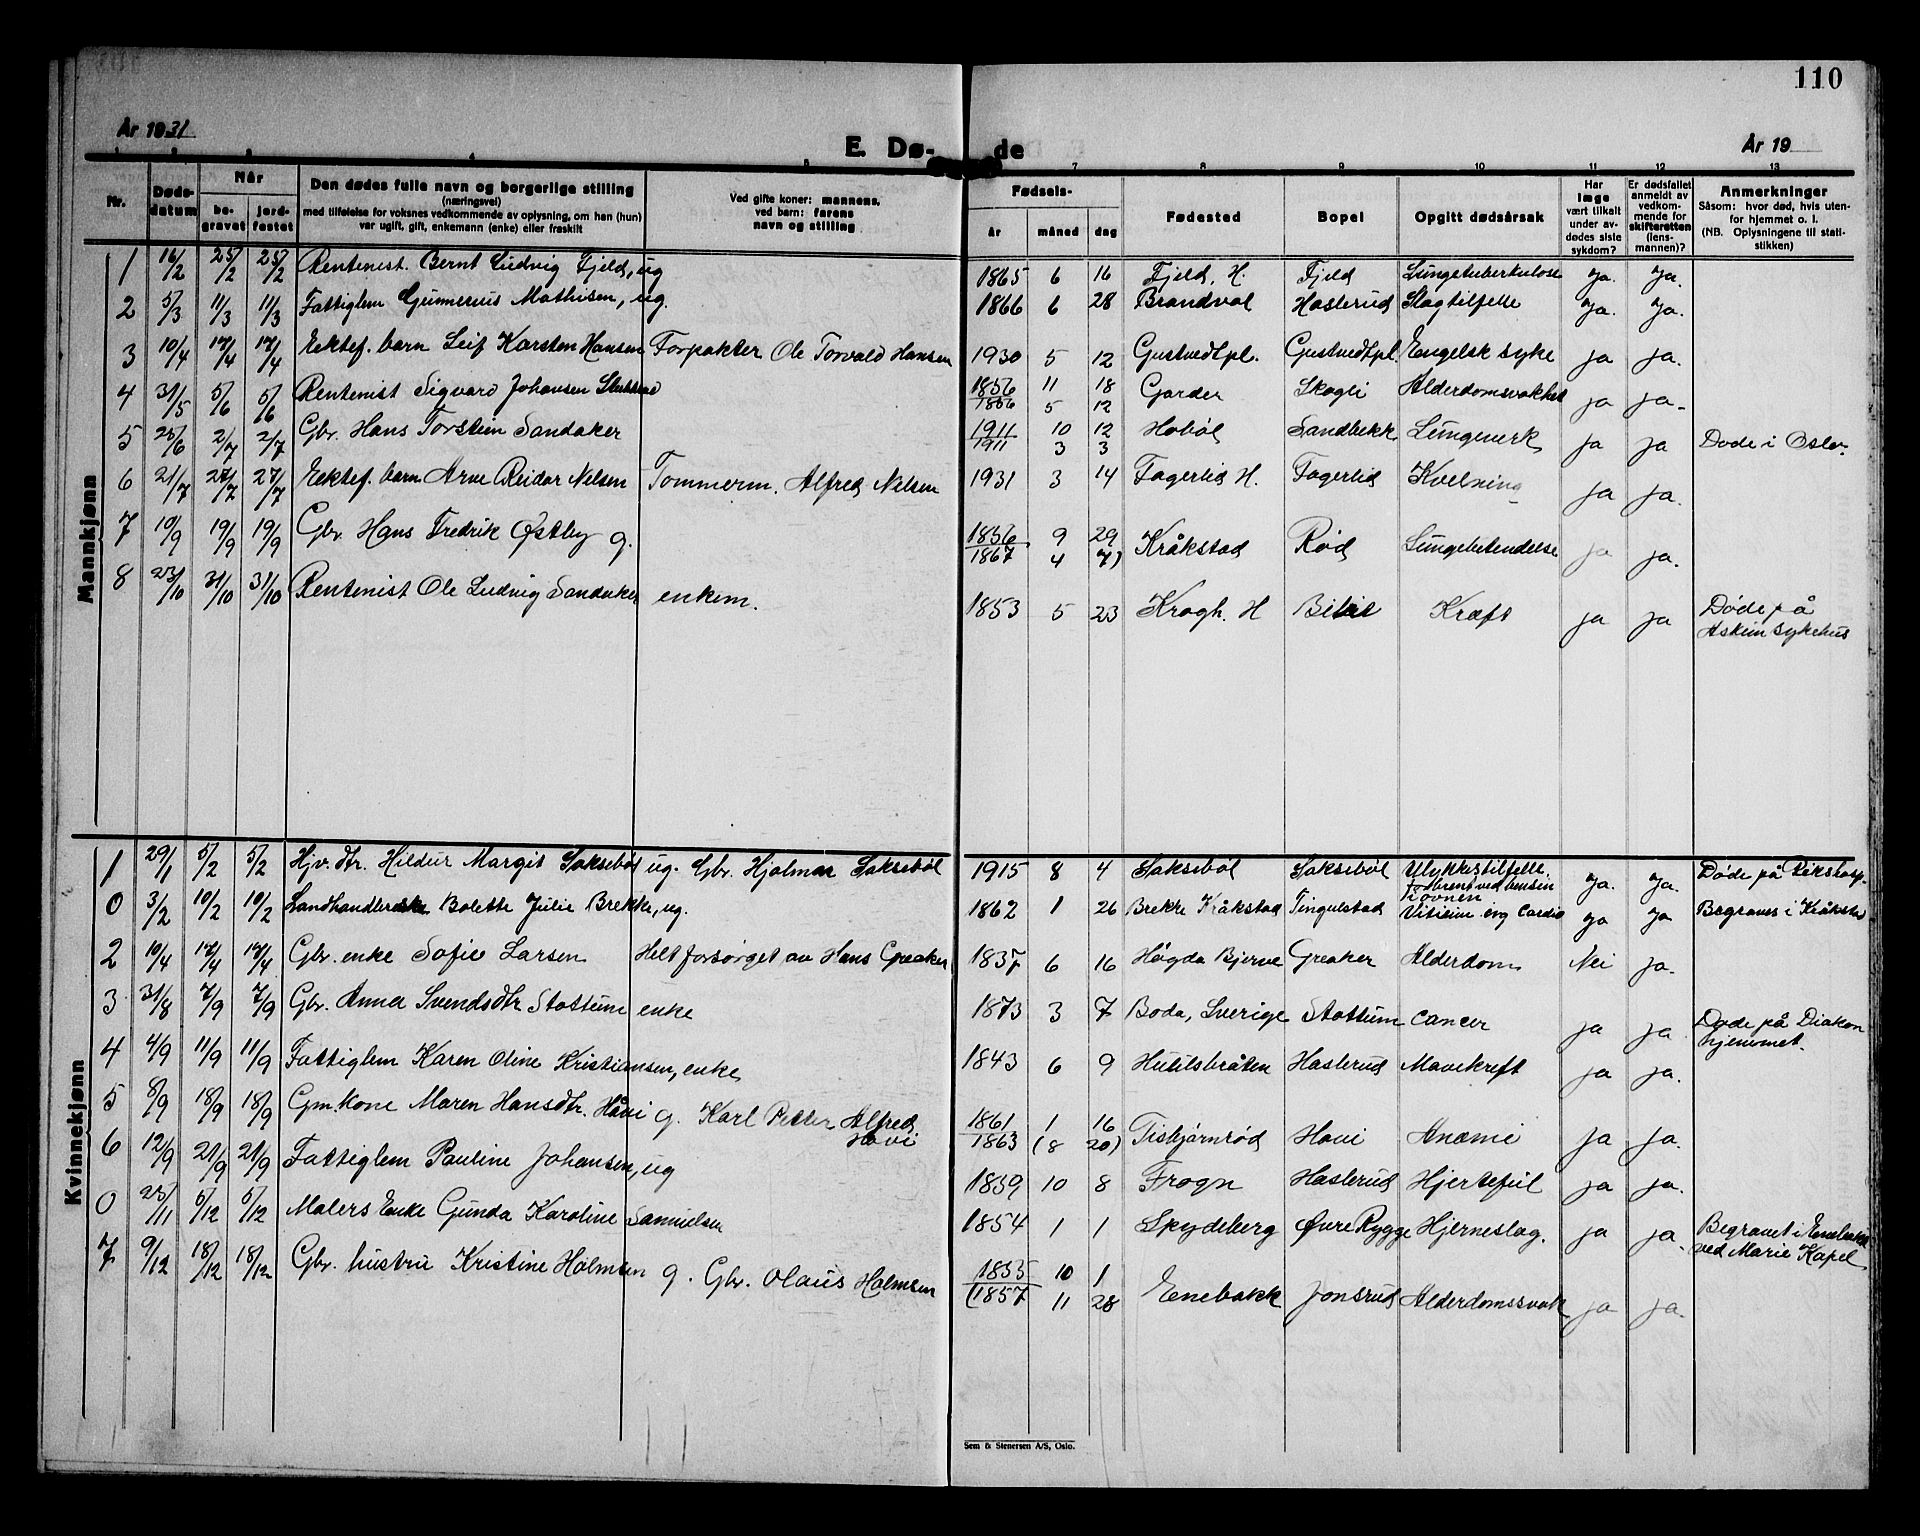 110
År 1931
E. Dø- de
År 19
1 2 3 4 5 7 8 9 10 11 12 13
Nr. | Døds-datum | Når be-gravet | Når jord-festet | Den dødes fulle navn og borgerlige stilling (næringsvei) med tilføielse for voksnes vedkommende av oplysning, om han (hun) var ugift, gift, enkemann (enke) eller fraskilt | Ved gifte koner: mannens, ved barn: farens navn og stilling | Fødsels- år | måned | dag | Fødested | Bopel | Opgitt dødsårsak | Har læge vært tilkalt under av-dødes siste sykdom? | Er dødsfallet anmeldt av vedkom-mende for skifteretten (lens-mannen)? | Anmerkninger Såsom: hvor død, hvis uten-for hjemmet o. l. (NB. Oplysningene til stati-stikken)
Mannkjønn
1 | 16/2 | 25/2 | 25/2 | Rentenist. Bernt Ludvig Fjeld, ug | 1865 | 6 | 16 | Fjeld, H. | Fjeld | Lungetuberkulose | Ja. | Ja.
2 | 5/3 | 11/3 | 11/3 | Fattiglem Gunnerius Mathisen, ug. | 1866 | 6 | 28 | Brandvol | Haslerud | Slagtilfelle | Ja. | Ja.
3 | 10/4 | 17/4 | 17/4 | Ektef. barn Leif Karsten Hansen | Forpakter Ole Torvald Hansen | 1930 | 5 | 12 | Gustvedtpl. | Gustvedtpl. | Engelsk syke | ja | ja.
4 | 31/5 | 5/6 | 5/6 | Rentenist Sigvard Johansen | 1856 / 1856 | 11 / 5 | 18 / 12 | Garder | Skogli | Alderdomsvakhet | ja | ja-
5 | 25/6 | 2/7 | 2/7 | Gbr. Hans Torstein Sandaker | 1911 / 1911 | 10 / 3 | 12 / 3 | Hobøl | Sandbekk | Lungeverk | ja | ja | Døde i Oslo.
6 | 21/7 | 27/7 | 27/7 | Ektef. barn Arne Reidar Nelsen | Tømmerm. Alfred Nelsen | 1931 | 3 | 14 | Fagerlid H. | Fagerlid | Kvelning | ja | ja.
7 | 10/9 | 19/9 | 19/9 | Gbr. Hans Fredrik Østby g. | 1856 / 1867 | 9 / 4 | 29 / 7) | Kråkstad | Rød | Lungebetendelse | ja | ja.
8 | 23/10 | 31/10 | 31/10 | Rentenist Ole Ludvig Sandaker | enkem. | 1853 | 5 | 23 | Krogh. H | | Kræft | ja | ja | Døde på Askim sykehus
Kvinnekjønn
1 | 29/1 | 5/2 | 5/2 | Hjv. dtr. Hildur Margit Saksebøl | ug. Gbr. Hjalmar Saksebøl | 1915 | 8 | 4 | Saksebøl | Saksebøl | Ulykkestilfelle. Forbrent ved bensin | Ja. | Ja. | Døde på Rikshosp.
0 | 3/2 | 10/2 | 10/2 | Landhandlerske Bolette Julie Brekke, ug. | 1862 | 1 | 26 | Brekke Kråkstad | Tingulstad | Vitium org Cordis | ja | ja | Begraves i Kråkstad
2 | 10/4 | 17/4 | 17/4 | Gbr. enke Sofie Larsen | Helt forsørget av Hans Greaker | 1837 | 6 | 16 | Høgda Bjerve | Greaker | Alderdom | Nei | ja.
3 | 31/8 | 7/9 | 7/9 | Gbr. Anna Svendsdtr Stottum | enke | 1873 | 3 | 7 | Boda, Sverige | Stottum | Cancer | ja | ja | Døde på Diakon hjemmet.
4 | 4/9 | 11/9 | 11/9 | Fattiglem Karen Oline Kristiansen, enke | 1843 | 6 | 9 | | Haslerud | Mavekreft | ja | ja.
5 | 8/9 | 18/9 | 18/9 | Gm.kone Maren Hansdtr. Håvi | g. Karl Petter Alfred Hovi | 1861 / 1863 | 1 / (8 | 16 / 20) | Tisbjørnrød | Hovi | Anæmi | ja | ja.
6 | 12/9 | 21/9 | 21/9 | Fattiglem Pauline Johansen, ug | 1859 | 10 | 8 | Frogn | Haslerud | Hjertefeil | ja | ja.
0 | 25/11 | 5/12 | 5/12 | Malers Enke Gunda Karoline Samuelsen | 1854 | 1 | 1 | Spydeberg | Øvre Rygge | Hjerneslag. | ja | ja. | Begravet i Enebakk ved Marie Kapel
7 | 9/12 | 18/12 | 18/12 | Gbr. hustru Kristine Holmsen | g. Gbr. Olaus Holmsen | 1855 / (1857 | 10 / 11 | 1 / 28 | Enebakk | Jonsrud | Alderdomssvak | ja | ja.
Sem & Stenersen A/S, Oslo.